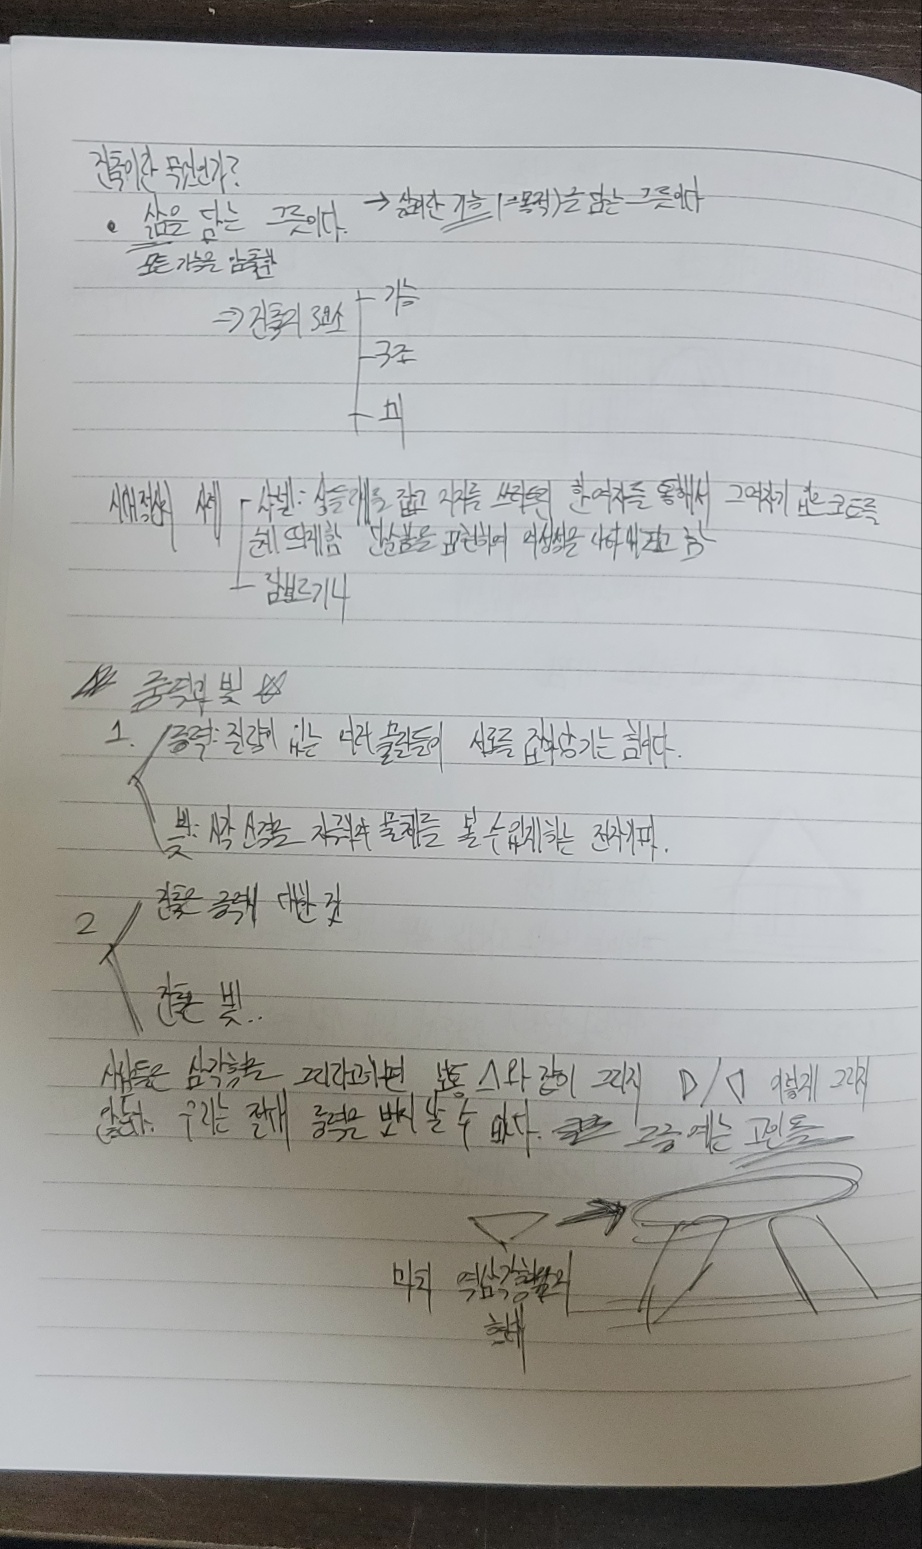 건축이란 무엇인가?
• 삶을 담는 그릇이다. → 삶이란 기능(=목적)을 담는 그릇이다
모든 기능을 함축한
⇒ 건축의 3요소
기능
구조
미
시대적상의 사례
샤넬: 샹들레를 잡고 모자를 쓰러트린 한여자를 통해서 그여자가 입은 코트를
눈에 띄게함 단순함을 표현하여 여성성을 나타내고자 함
람보르기니
☆ 중력과 빛 ☆
1.
중력: 질량이 있는 여러 물질들이 서로를 잡아당기는 힘이다.
빛: 시각 신경을 자극하여 물체를 볼 수 있게하는 전자기파.
2
건축은 중력에 대한 것
건축은 빛..
사람들은 삼각형을 그리라고하면 보통 △와 같이 그리지 ▷/◁ 이렇게 그리지
않는다. 우리는 절대 중력은 벗어날 수 없다. 그금 예는 고인돌
마치 역삼각형의
형태